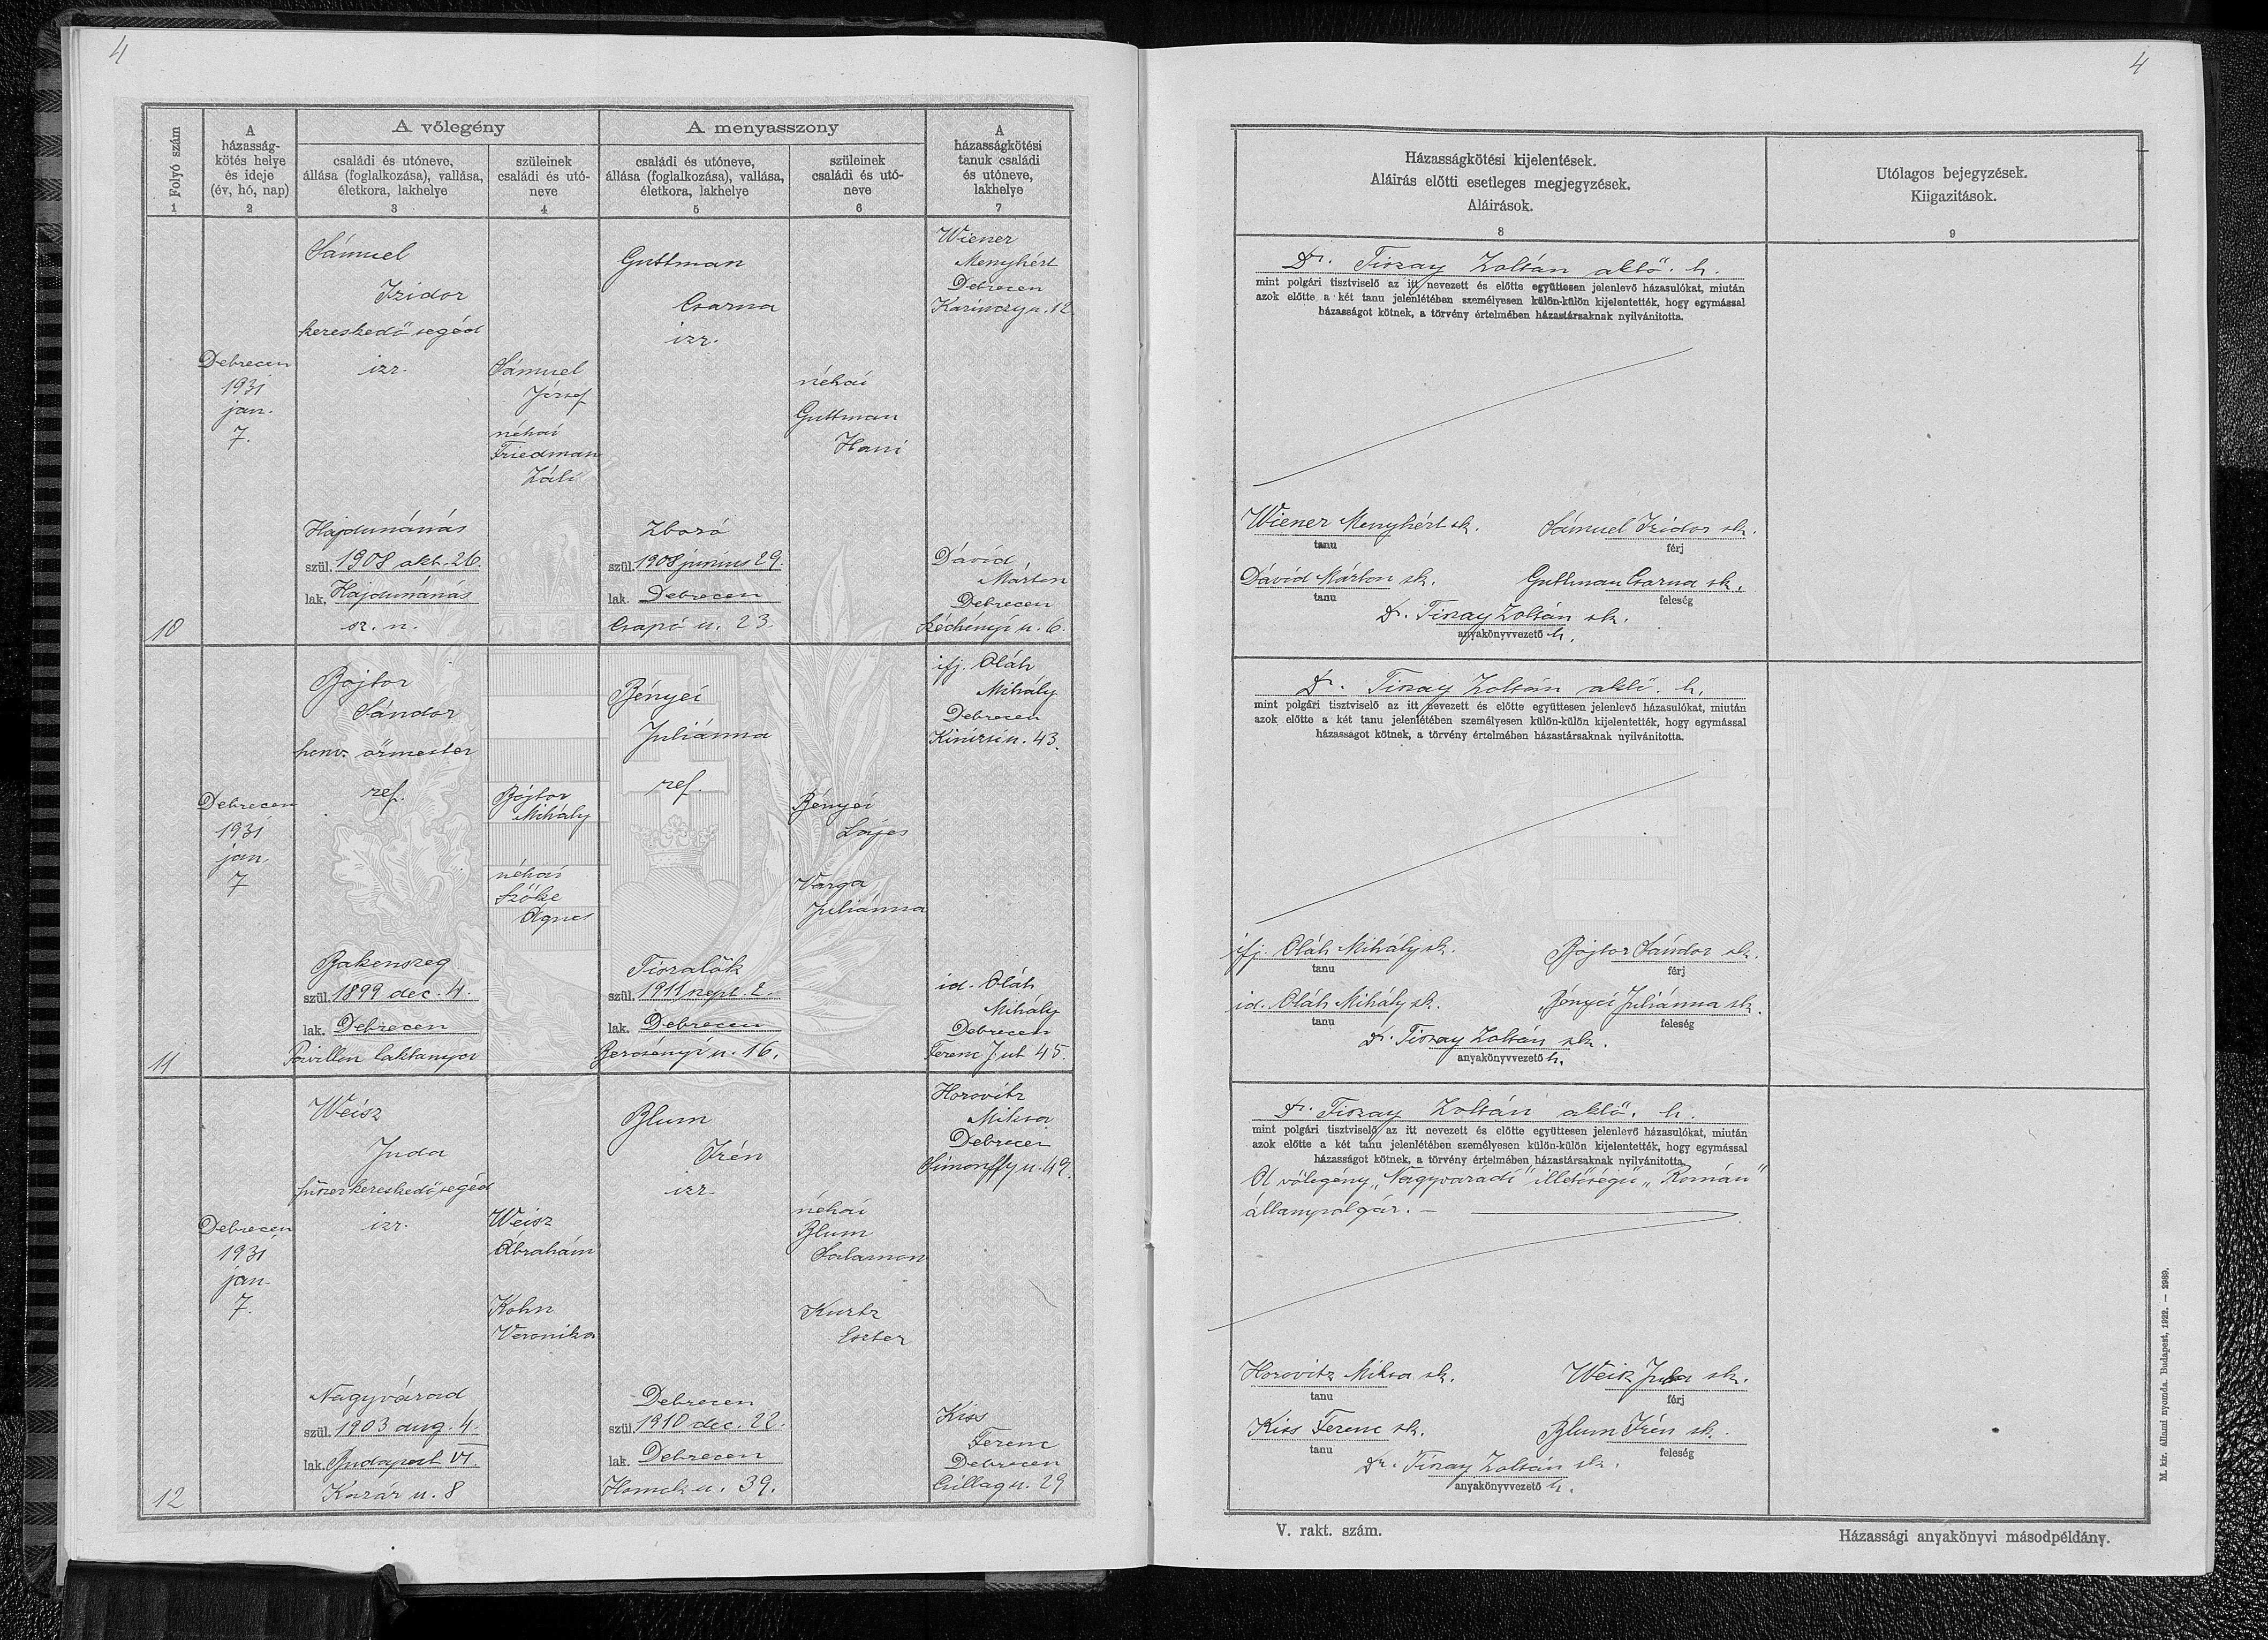 4
4
Folyó szám
1
A
házasság-
kötés helye
és ideje
(év, hó, nap)
2
A vőlegény
családi és utóneve,
állása (foglalkozása), vallása,
életkora, lakhelye
3
szüleinek
családi és utó-
neve
4
A menyasszony
családi és utóneve,
állása (foglalkozása), vallása,
életkora, lakhelye
5
szüleinek
családi és utó-
neve
6
A
házasságkötési
tanuk családi
és utóneve,
lakhelye
7
10
Debrecen
1931
jan.
7.
Sámuel
Izidor
kereskedő segéd
izr.
Hajdunánás
szül. 1908 okt. 26.
lak. Hajdunánás
sz. n.
Sámuel
József
néhai
Friedman
Záli
Guttman
Csarna
izr.
Zboró
szül. 1908 június 29.
lak. Debrecen
Csapó u. 23.
néhai
Guttman
Hani
Wiener
Menyhért
Debrecen
Kazinczy u. 12.
Dávid
Márton
Debrecen
Széchenyi u. 6.
11
Debrecen
1931
jan.
7
Bojtor
Sándor
honv. őrmester
ref.
Bakonszeg
szül. 1899 dec. 4.
lak. Debrecen
Pavillon laktanya
Bojtor
Mihály
néhai
Szőke
Ágnes
Bényei
Juliánna
ref.
Tiszalök
szül. 1911 szept. 2.
lak. Debrecen
Bercsényi u. 16.
Bényei
Lajos
Varga
Juliánna
ifj. Oláh
Mihály
Debrecen
Kinizsi u. 43.
id. Oláh
Mihály
Debrecen
Ferenc J. ut 45.
12
Debrecen
1931
jan.
7.
Weisz
Juda
fűszerkereskedő segéd
izr.
Nagyvárad
szül. 1903 aug. 4.
lak. Budapest VI.
Kazár u. 8
Weisz
Ábrahám
Kohn
Veronika
Blum
Irén
izr.
Debrecen
szül. 1910 dec. 22.
lak. Debrecen
Homok u. 39.
néhai
Blum
Salamon
Kurtz
Eszter
Horovitz
Miksa
Debrecen
Simonffy u. 49
Kiss
Ferenc
Debrecen
Csillag u. 29
Házasságkötési kijelentések.
Aláirás előtti esetleges megjegyzések.
Aláirások.
8
Utólagos bejegyzések.
Kiigazitások.
9
Dr. Tiszay Zoltán aktő. h.
mint polgári tisztviselő az itt nevezett és előtte együttesen jelenlevő házasulókat, miután
azok előtte a két tanu jelenlétében személyesen külön-külön kijelentették, hogy egymással
házasságot kötnek, a törvény értelmében házastársaknak nyilvánitotta.
Wiener Menyhért sk. Sámuel Izidor sk.
tanu férj
Dávid Márton sk. Guttman Csarna sk.
tanu feleség
Dr. Tiszay Zoltán sk.
anyakönyvvezető h.
Dr. Tiszay Zoltán aktő. h.
mint polgári tisztviselő az itt nevezett és előtte együttesen jelenlevő házasulókat, miután
azok előtte a két tanu jelenlétében személyesen külön-külön kijelentették, hogy egymással
házasságot kötnek, a törvény értelmében házastársaknak nyilvánitotta.
ifj. Oláh Mihály sk. Bojtor Sándor sk.
tanu férj
id. Oláh Mihály sk. Bényei Juliánna sk.
tanu feleség
Dr. Tiszay Zoltán sk.
anyakönyvvezető h.
Dr. Tiszay Zoltán aktő. h.
mint polgári tisztviselő az itt nevezett és előtte együttesen jelenlevő házasulókat, miután
azok előtte a két tanu jelenlétében személyesen külön-külön kijelentették, hogy egymással
házasságot kötnek, a törvény értelmében házastársaknak nyilvánitotta.
A vőlegény „Nagyváradi" illetőségü „Román"
állampolgár. —
Horovitz Miksa sk. Weisz Juda sk.
tanu férj
Kiss Ferenc sk. Blum Irén sk.
tanu feleség
Dr. Tiszay Zoltán sk.
anyakönyvvezető h.
V. rakt. szám.
Házassági anyakönyvi másodpéldány.
M. kir. állami nyomda. Budapest, 1922. — 2989.